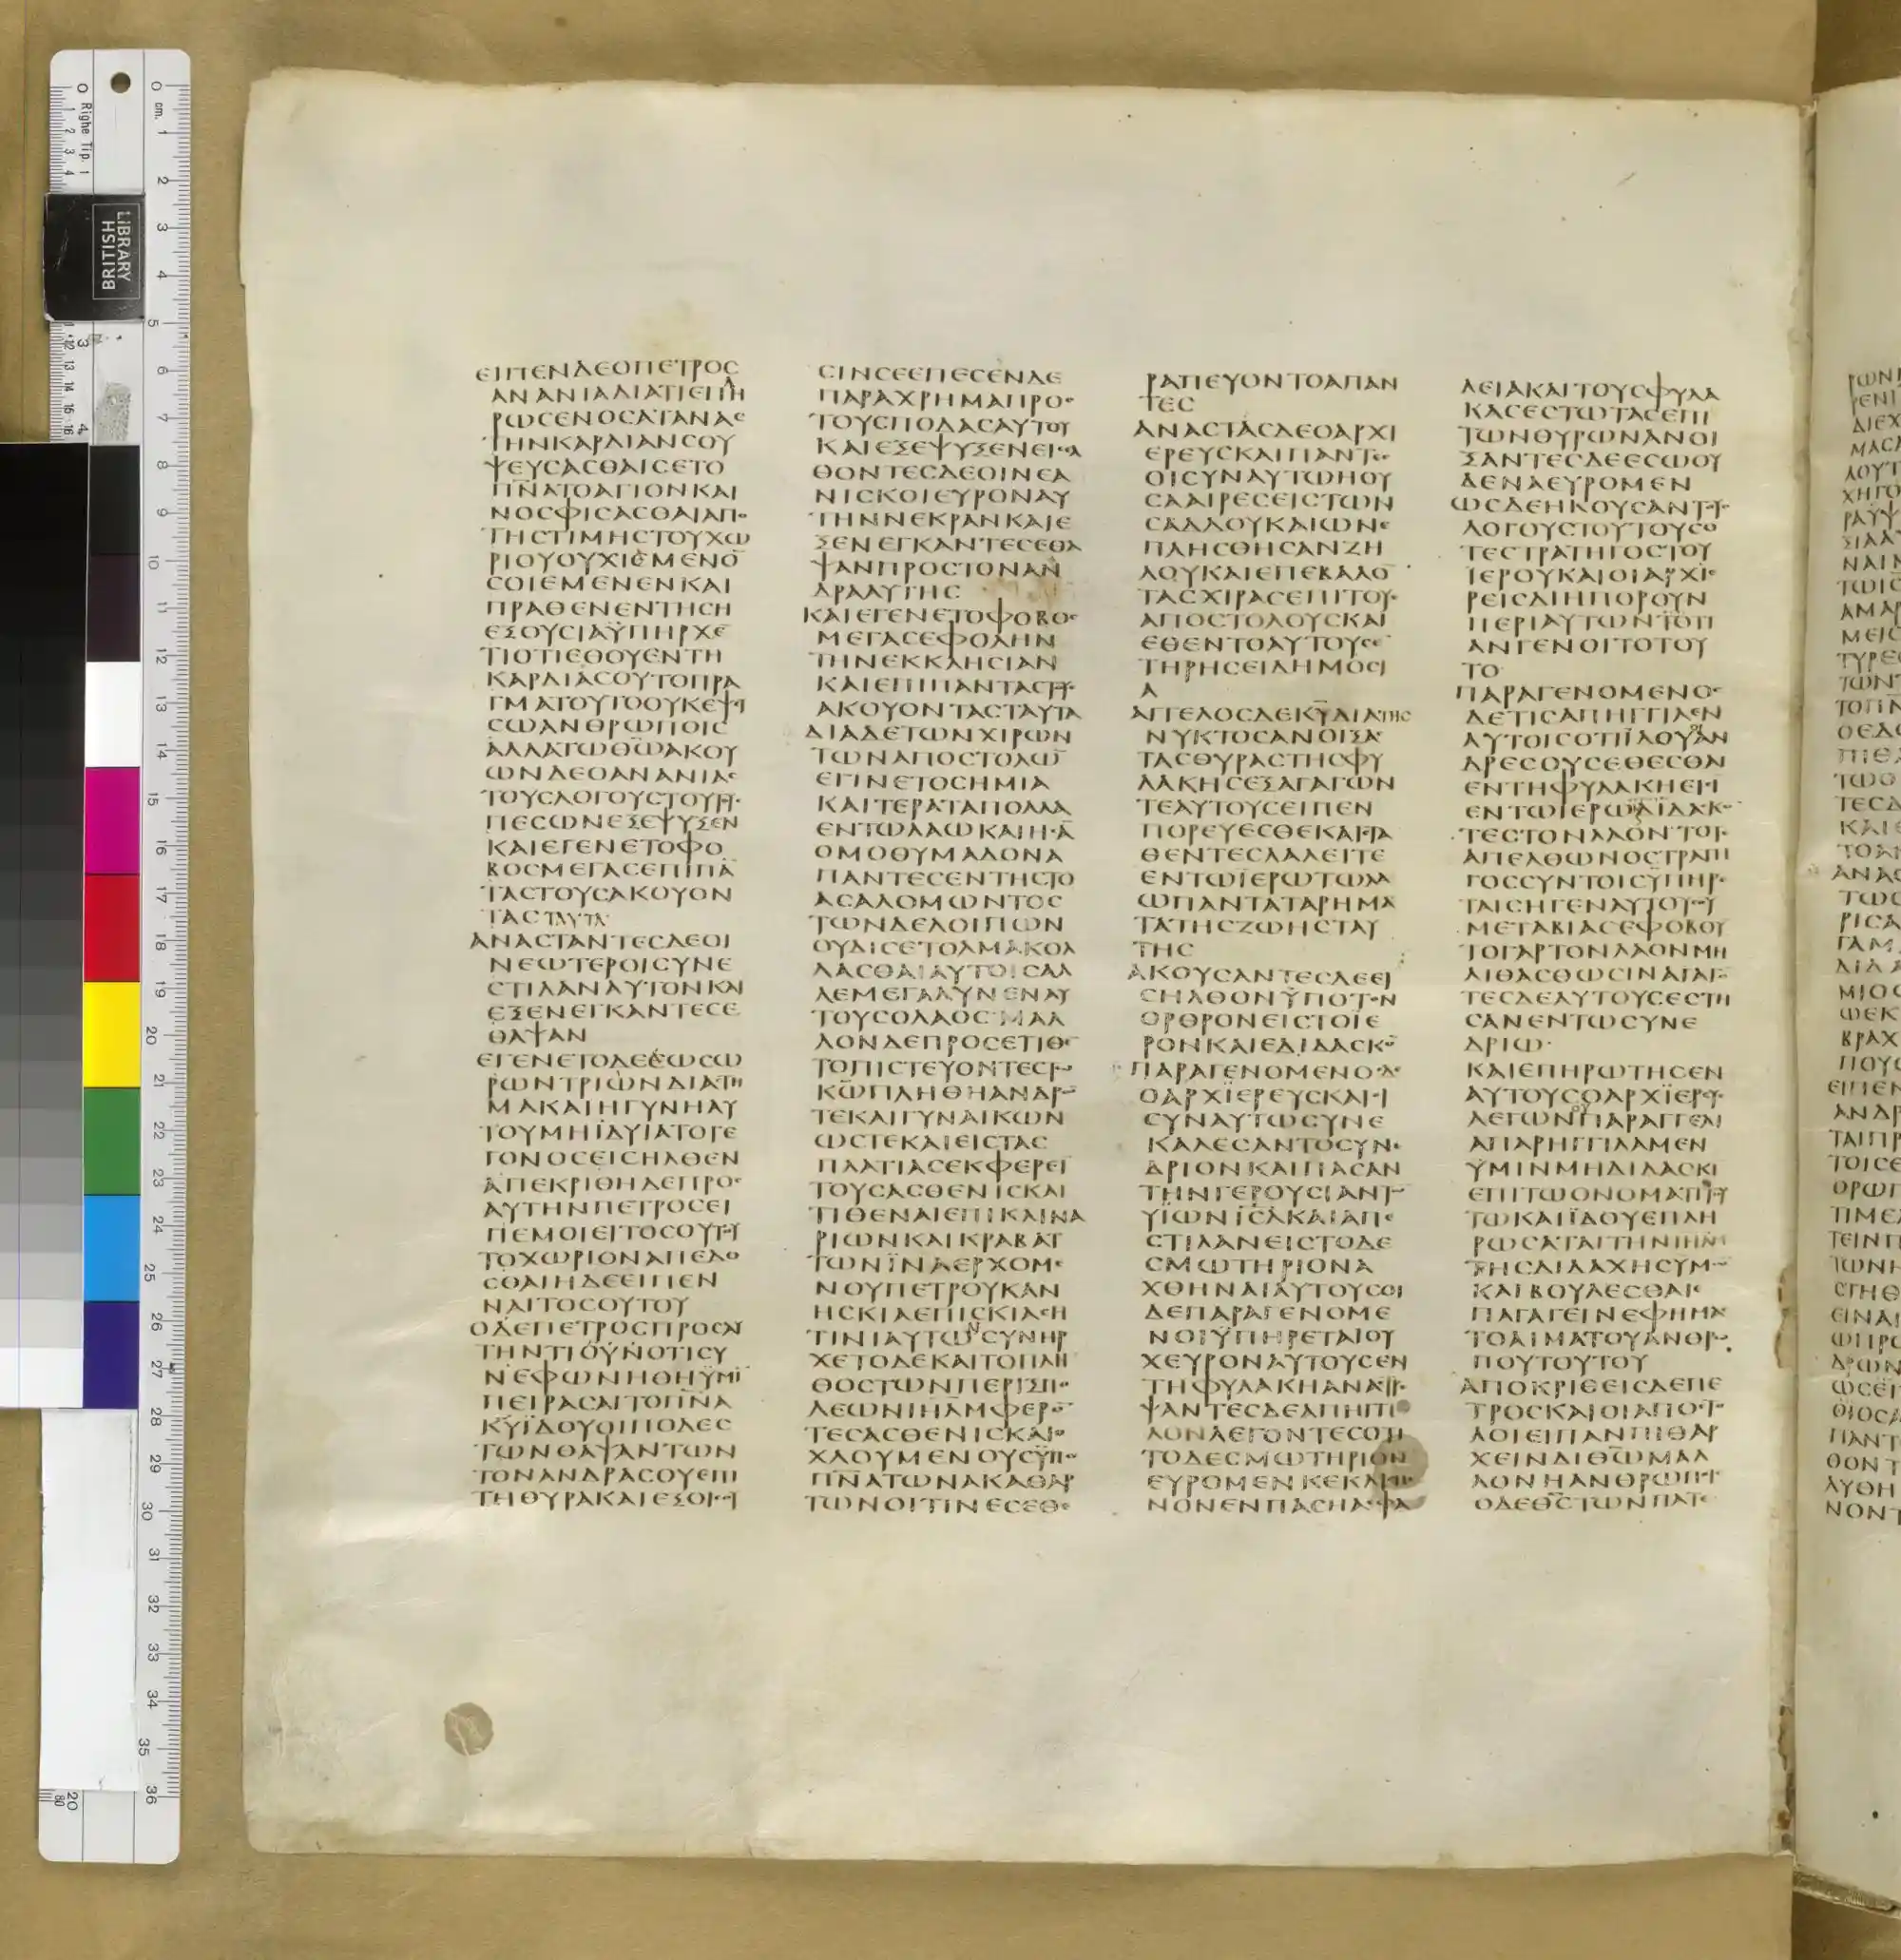 ΕΙΠΕΝΔΕΟΠΕΤΡΟϹ
ΑΝΑΝΙΑΔΙΑΤΙΕΠΗ
ΡΩϹΕΝΟϹΑΤΑΝΑϹ
ΤΗΝΚΑΡΔΙΑΝϹΟΥ
ΨΕΥϹΑϹΘΑΙϹΕΤΟ
Π̅Ν̅Α̅ΤΟΑΓΙΟΝΚΑΙ
ΝΟϹΦΙϹΑϹΘΑΙΑΠΟ
ΤΗϹΤΙΜΗϹΤΟΥΧΩ
ΡΙΟΥΟΥΧΙΕΜΕΝΟ̅
ϹΟΙΕΜΕΝΕΝΚΑΙ
ΠΡΑΘΕΝΕΝΤΗϹΗ
ΕΞΟΥϹΙΑΫΠΗΡΧΕ̅
ΤΙΟΤΙΕΘΟΥΕΝΤΗ
ΚΑΡΔΙΑϹΟΥΤΟΠΡΑ
ΓΜΑΤΟΥΤΟΟΥΚΕΨΥ
ϹΩΑΝΘΡΩΠΟΙϹ
ΑΛΛΑΤΩΘ̅Ω̅ΑΚΟΥ
ΩΝΔΕΟΑΝΑΝΙΑϹ
ΤΟΥϹΛΟΓΟΥϹΤΟΥΤΟΥϹ
ΠΕϹΩΝΕΞΕΨΥΞΕΝ
ΚΑΙΕΓΕΝΕΤΟΦΟ
ΒΟϹΜΕΓΑϹΕΠΙΠΑ̅
ΤΑϹΤΟΥϹΑΚΟΥΟΝ
ΤΑϹΤΑΥΤΑ
ΑΝΑϹΤΑΝΤΕϹΔΕΟΙ
ΝΕΩΤΕΡΟΙϹΥΝΕ
ϹΤΙΛΑΝΑΥΤΟΝΚΑΙ
ΕΞΕΝΕΓΚΑΝΤΕϹΕ
ΘΑΨΑΝ
ΕΓΕΝΕΤΟΔΕΕΩϹΩ
ΡΩΝΤΡΙΩΝΔΙΑϹΤΗ
ΜΑΚΑΙΗΓΥΝΗΑΥ
ΤΟΥΜΗΪΔΥΙΑΤΟΓΕ
ΓΟΝΟϹΕΙϹΗΛΘΕΝ
ΑΠΕΚΡΙΘΗΔΕΠΡΟϹ
ΑΥΤΗΝΠΕΤΡΟϹΕΙ
ΠΕΜΟΙΕΙΤΟϹΟΥΤΟΥ
ΤΟΧΩΡΙΟΝΑΠΕΔΟ
ϹΘΑΙΗΔΕΕΙΠΕΝ
ΝΑΙΤΟϹΟΥΤΟΥ
ΟΔΕΠΕΤΡΟϹΠΡΟϹΑΥ
ΤΗΝΤΙΟΥΝΟΤΙϹΥ
ΝΕΦΩΝΗΘΗΫΜΙ̅
ΠΕΙΡΑϹΑΙΤΟΠ̅Ν̅Α̅
Κ̅Υ̅ΪΔΟΥΟΙΠΟΔΕϹ
ΤΩΝΘΑΨΑΝΤΩΝ
ΤΟΝΑΝΔΡΑϹΟΥΕΠΙ
ΤΗΘΥΡΑΚΑΙΕΞΟΙΟΥ
ϹΙΝϹΕΕΠΕϹΕΝΔΕ
ΠΑΡΑΧΡΗΜΑΠΡΟϹ
ΤΟΥϹΠΟΔΑϹΑΥΤΟΥ
ΚΑΙΕΞΕΨΥΞΕΝΕΙϹΕΛ
ΘΟΝΤΕϹΔΕΟΙΝΕΑ
ΝΙϹΚΟΙΕΥΡΟΝΑΥ
ΤΗΝΝΕΚΡΑΝΚΑΙΕ
ΞΕΝΕΓΚΑΝΤΕϹΕΘΑ
ΨΑΝΠΡΟϹΤΟΝΑΝ
ΔΡΑΑΥΤΗϹ
ΚΑΙΕΓΕΝΕΤΟΦΟΒΟϹ
ΜΕΓΑϹΕΦΟΛΗΝ
ΤΗΝΕΚΚΛΗϹΙΑΝ
ΚΑΙΕΠΙΠΑΝΤΑϹΤΟΥϹ
ΑΚΟΥΟΝΤΑϹΤΑΥΤΑ
ΔΙΑΔΕΤΩΝΧΙΡΩΝ
ΤΩΝΑΠΟϹΤΟΛΩ̅
ΕΓΙΝΕΤΟϹΗΜΙΑ
ΚΑΙΤΕΡΑΤΑΠΟΛΛΑ
ΕΝΤΩΛΑΩΚΑΙΗϹΑ̅
ΟΜΟΘΥΜΑΔΟΝΑ
ΠΑΝΤΕϹΕΝΤΗϹΤΟ
ΑϹΑΛΟΜΩΝΤΟϹ
ΤΩΝΔΕΛΟΙΠΩΝ
ΟΥΔΙϹΕΤΟΛΜΑΚΟΛ
ΛΑϹΘΑΙΑΥΤΟΙϹΑΛ
ΛΕΜΕΓΑΛΥΝΕΝΑΥ
ΤΟΥϹΟΛΑΟϹΜΑΛ
ΛΟΝΔΕΠΡΟϹΕΤΙΘΕ̅
ΤΟΠΙϹΤΕΥΟΝΤΕϹΤΩ
Κ̅Ω̅ΠΛΗΘΗΑΝΔΡΩ̅
ΤΕΚΑΙΓΥΝΑΙΚΩΝ
ΩϹΤΕΚΑΙΕΙϹΤΑϹ
ΠΛΑΤΙΑϹΕΚΦΕΡΕΙ̅
ΤΟΥϹΑϹΘΕΝΙϹΚΑΙ
ΤΙΘΕΝΑΙΕΠΙΚΛΙΝΑ
ΡΙΩΝΚΑΙΚΡΑΒΑΤ
ΤΩΝΪΝΑΕΡΧΟΜΕ
ΝΟΥΠΕΤΡΟΥΚΑΝ
ΗϹΚΙΑΕΠΙϹΚΙΑϹΗ
ΤΙΝΙΑΥΤΩΝϹΥΝΗΡ
ΧΕΤΟΔΕΚΑΙΤΟΠΛΗ
ΘΟϹΤΩΝΠΕΡΙΞΠΟ
ΛΕΩΝΙΗΛΜΦΕΡΟ̅
ΤΕϹΑϹΘΕΝΙϹΚΑΙΟ
ΧΛΟΥΜΕΝΟΥϹΫΠΟ
Π̅Ν̅Α̅ΤΩΝΑΚΑΘΑΡ
ΤΩΝΟΙΤΙΝΕϹΕΘΕ
ΡΑΠΕΥΟΝΤΟΑΠΑΝ
ΤΕϹ
ΑΝΑϹΤΑϹΔΕΟΑΡΧΙ
ΕΡΕΥϹΚΑΙΠΑΝΤΕϹ
ΟΙϹΥΝΑΥΤΩΗΟΥ
ϹΑΑΙΡΕϹΕΙϹΤΩΝ
ϹΑΔΔΟΥΚΑΙΩΝΕ
ΠΛΗϹΘΗϹΑΝΖΗ
ΛΟΥΚΑΙΕΠΕΒΑΛΟ̅
ΤΑϹΧΙΡΑϹΕΠΙΤΟΥϹ
ΑΠΟϹΤΟΛΟΥϹΚΑΙ
ΕΘΕΝΤΟΑΥΤΟΥϹΕ̅
ΤΗΡΗϹΕΙΔΗΜΟϹΙ
Α
ΑΓΓΕΛΟϹΔΕΚ̅Υ̅ΔΙΑΤΗϹ
ΝΥΚΤΟϹΑΝΟΙΞΑϹ
ΤΑϹΘΥΡΑϹΤΗϹΦΥ
ΛΑΚΗϹΕΞΑΓΑΓΩΝ
ΤΕΑΥΤΟΥϹΕΙΠΕΝ
ΠΟΡΕΥΕϹΘΕΚΑΙϹΤΑ
ΘΕΝΤΕϹΛΑΛΕΙΤΕ
ΕΝΤΩΪΕΡΩΤΩΛΑ
ΩΠΑΝΤΑΤΑΡΗΜΑ
ΤΑΤΗϹΖΩΗϹΤΑΥ
ΤΗϹ
ΑΚΟΥϹΑΝΤΕϹΔΕΕΙ
ϹΗΛΘΟΝΫΠΟΤΟΝ
ΟΡΘΡΟΝΕΙϹΤΟΙΕ
ΡΟΝΚΑΙΕΔΙΔΑϹΚΟ̅
ΠΑΡΑΓΕΝΟΜΕΝΟϹΔΕ
ΟΑΡΧΪΕΡΕΥϹΚΑΙΟΙ
ϹΥΝΑΥΤΩϹΥΝΕ
ΚΑΛΕϹΑΝΤΟϹΥΝΕ
ΔΡΙΟΝΚΑΙΠΑϹΑΝ
ΤΗΝΓΕΡΟΥϹΙΑΝΤΩ̅
ΥΪΩΝΙ̅ϹΛΚΑΙΑΠΕ
ϹΤΙΛΑΝΕΙϹΤΟΔΕ
ϹΜΩΤΗΡΙΟΝΑ
ΧΘΗΝΑΙΑΥΤΟΥϹΟΙ
ΔΕΠΑΡΑΓΕΝΟΜΕ
ΝΟΙΫΠΗΡΕΤΑΙΟΥ
ΧΕΥΡΟΝΑΥΤΟΥϹΕΝ
ΤΗΦΥΛΑΚΗΑΝΑϹΤΡΕ
ΨΑΝΤΕϹΔΕΑΠΗΓΓΙ
ΛΟΝΛΕΓΟΝΤΕϹΟΤΙ
ΤΟΔΕϹΜΩΤΗΡΙΟΝ
ΕΥΡΟΜΕΝΚΕΚΛΙϹΜΕ
ΝΟΝΕΝΠΑϹΗΑϹΦΑ
ΛΕΙΑΚΑΙΤΟΥϹΦΥΛΑ
ΚΑϹΕϹΤΩΤΑϹΕΠΙ
ΤΩΝΘΥΡΩΝΑΝΟΙ
ΞΑΝΤΕϹΔΕΕϹΩΟΥ
ΔΕΝΑΕΥΡΟΜΕΝ
ΩϹΔΕΗΚΟΥϹΑΝΤΟΥϹ
ΛΟΓΟΥϹΤΟΥΤΟΥϹΟ
ΤΕϹΤΡΑΤΗΓΟϹΤΟΥ
ΪΕΡΟΥΚΑΙΟΙΑΡΧΙΕ
ΡΕΙϹΔΙΗΠΟΡΟΥΝ
ΠΕΡΙΑΥΤΩΝΤΟΤΙ
ΑΝΓΕΝΟΙΤΟΤΟΥ
ΤΟ
ΠΑΡΑΓΕΝΟΜΕΝΟϹ
ΔΕΤΙϹΑΠΗΓΓΙΛΕΝ
ΑΥΤΟΙϹΟΤΙΪΔΟΥΟΙΑΝ
ΔΡΕϹΟΥϹΕΘΕϹΘΑΙ
ΕΝΤΗΦΥΛΑΚΗΕΙϹΙ
ΕΝΤΩΙΕΡΩΚΑΙΔΙΔΑϹΚΟ̅
ΤΕϹΤΟΝΛΑΟΝΤΟΤΕ
ΑΠΕΛΘΩΝΟϹΤΡΑΤΗ
ΓΟϹϹΥΝΤΟΙϹΫΠΗΡΕ
ΤΑΙϹΗΓΕΝΑΥΤΟΥϹΟΥ
ΜΕΤΑΒΙΑϹΕΦΟΒΟΥ̅
ΤΟΓΑΡΤΟΝΛΑΟΝΜΗ
ΛΙΘΑϹΘΩϹΙΝΑΓΑΓΟ̅
ΤΕϹΔΕΑΥΤΟΥϹΕϹΤΗ
ϹΑΝΕΝΤΩϹΥΝΕ
ΔΡΙΩ
ΚΑΙΕΠΗΡΩΤΗϹΕΝ
ΑΥΤΟΥϹΟΑΡΧΪΕΡΕΥϹ
ΛΕΓΩΝΟΥΠΑΡΑΓΓΕΛΙ
ΑΠΑΡΗΓΓΙΛΑΜΕΝ
ΫΜΙΝΜΗΔΙΔΑϹΚΙ̅
ΕΠΙΤΩΟΝΟΜΑΤΙΤΟΥ
ΤΩΚΑΙΪΔΟΥΕΠΛΗ
ΡΩϹΑΤΑΙΤΗΝΙΗΛΜ
ΤΗϹΔΙΔΑΧΗϹΥΜΩ̅
ΚΑΙΒΟΥΛΕϹΘΑΙΕ
ΠΑΓΑΓΕΙΝΕΦΗΜΑϹ
ΤΟΑΙΜΑΤΟΥΑΝΘΡΩ
ΠΟΥΤΟΥΤΟΥ
ΑΠΟΚΡΙΘΕΙϹΔΕΠΕ
ΤΡΟϹΚΑΙΟΙΑΠΟϹΤΟ
ΛΟΙΕΙΠΑΝΠΙΘΑΡ
ΧΕΙΝΔΙΘ̅Ω̅ΜΑΛ
ΛΟΝΗΑΝΘΡΩΠΟΙϹ
ΟΔΕΘ̅Ϲ̅ΤΩΝΠΑΤΕ
BRITISH
LIBRARY